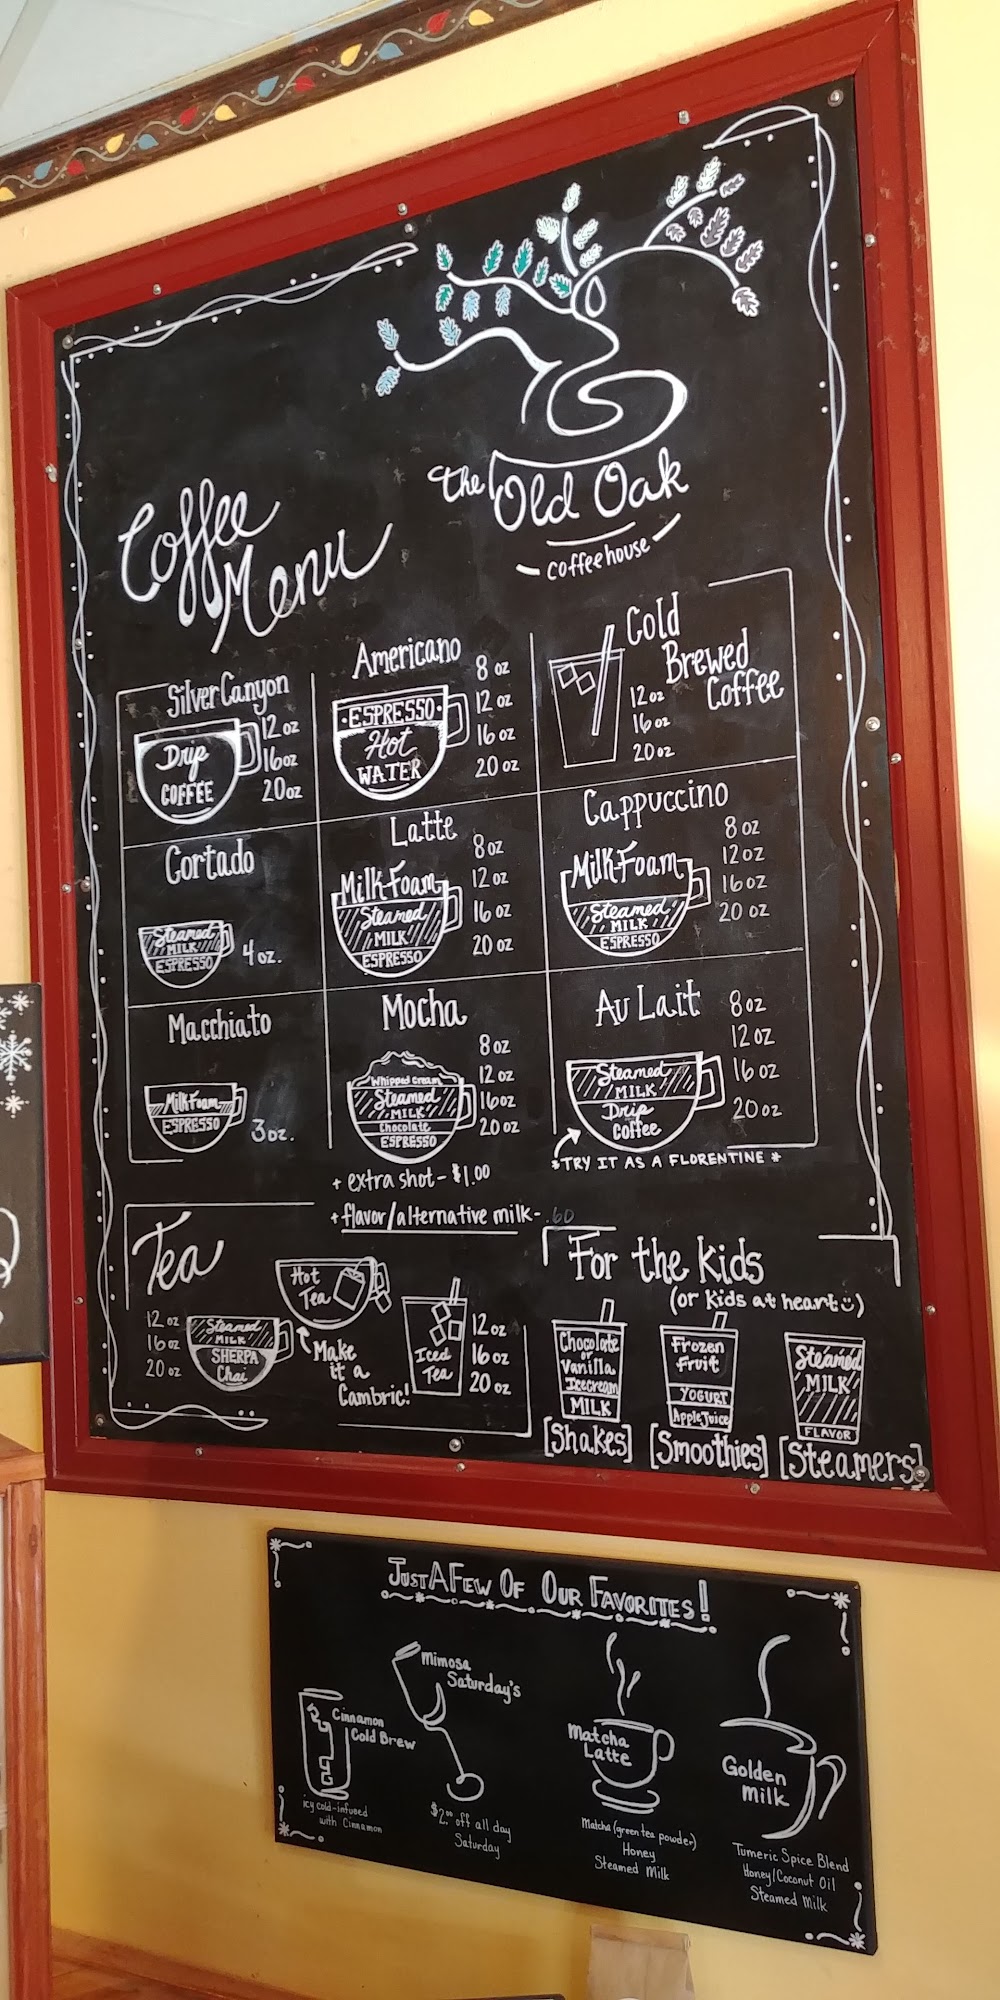 The Old Oak
coffeehouse
Coffee
Menu
Silver Canyon
Drip
COFFEE
12 oz
16oz
20oz
Americano
ESPRESSO
Hot
WATER
8 oz
12 oz
16 oz
20 oz
Cold
Brewed
Coffee
12 oz
16 oz
20 oz
Cortado
Steamed
MILK
ESPRESSO
4 oz.
Latte
Milk Foam
Steamed
MILK
ESPRESSO
8 oz
12 oz
16 oz
20 oz
Cappuccino
Milk Foam
Steamed
MILK
ESPRESSO
8 oz
12 oz
16 oz
20 oz
Macchiato
Milk Foam
ESPRESSO
3 oz.
Mocha
Whipped Cream
Steamed
MILK
Chocolate
ESPRESSO
8 oz
12 oz
16oz
20 oz
Au Lait
Steamed
MILK
Drip
Coffee
8 oz
12 oz
16 oz
20 oz
*TRY IT AS A FLORENTINE *
+ extra shot - $1.00
+ flavor/alternative milk - .60
Tea
12 oz
16 oz
20 oz
Steamed
MILK
SHERPA
Chai
Hot
Tea
Make
it a
Cambric!
Iced
Tea
12 oz
16 oz
20 oz
For the Kids
(or kids at heart :))
Chocolate
or
Vanilla
Icecream
MILK
[Shakes]
Frozen
Fruit
YOGURT
Apple Juice
[Smoothies]
Steamed
MILK
FLAVOR
[Steamers]
JUST A FEW OF OUR FAVORITES!
Cinnamon
Cold Brew
icy cold-infused
with Cinnamon
Mimosa
Saturday's
$2.00 off all day
Saturday
Matcha
Latte
Matcha (green tea powder)
Honey
Steamed Milk
Golden
milk
Tumeric Spice Blend
Honey/Coconut Oil
Steamed Milk